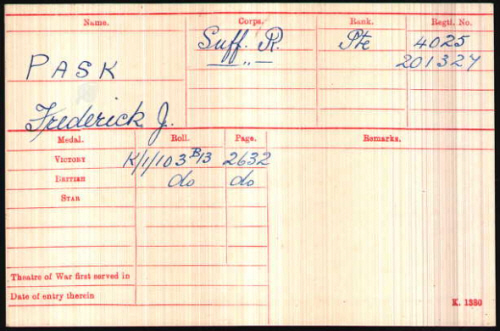 Name. Corps. Rank. Regtl. No.
PASK Suff. R. Pte 4025
—„— 201327
Frederick J.
Medal. Roll. Page. Remarks.
VICTORY K/1/103 B/13 2632
BRITISH do do
STAR
Theatre of War first served in
Date of entry therein
K. 1380